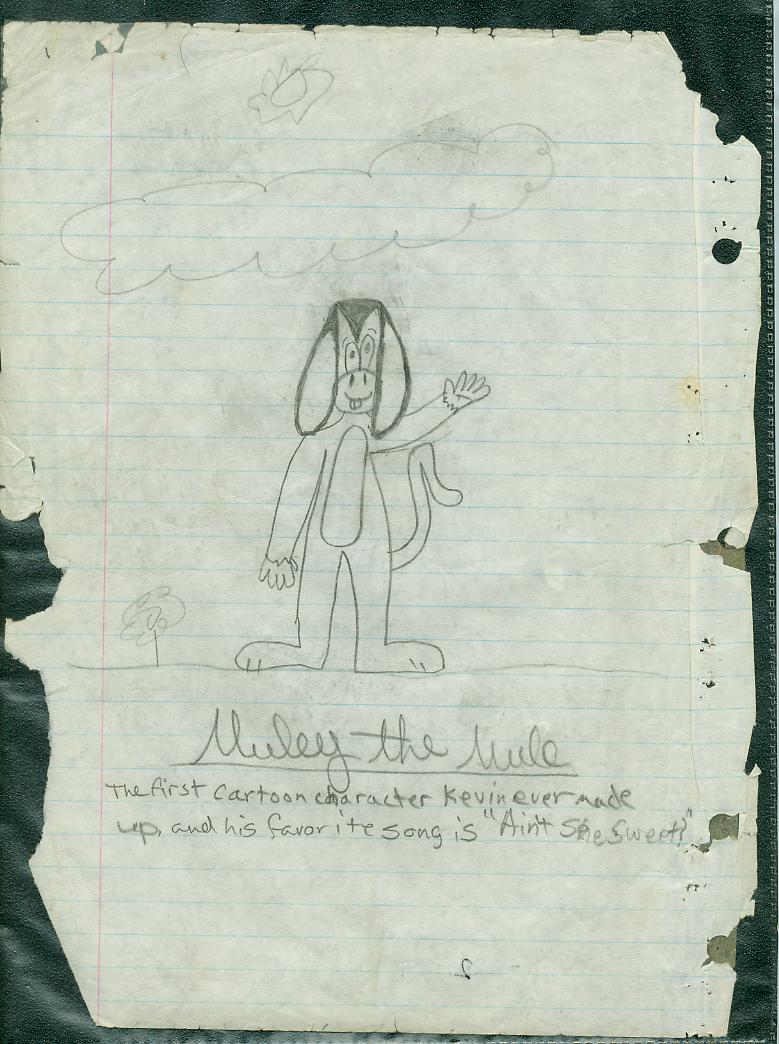 Muley the Mule
The first Cartoon character Kevin ever made
up, and his favorite song is "Ain't She Sweet?"
2